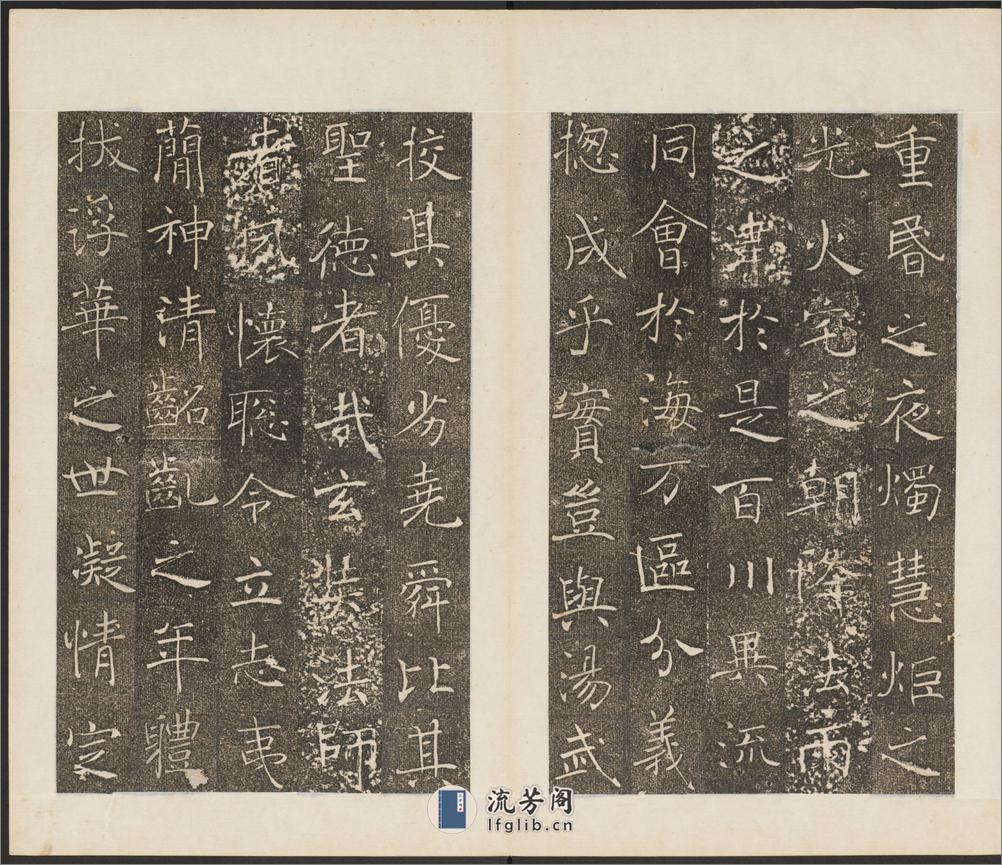 重昬之夜燭慧炬之
光火宅之朝降法雨
之⿱於是百川異流
同會於海万區分義
揔成乎實豈與湯武
挍其優劣堯舜比其
聖德者哉玄奘法師
者夙懷聡令立志夷
蕳神清齠齓之年體
拔浮華之世凝情定
流芳阁
lfglib.cn